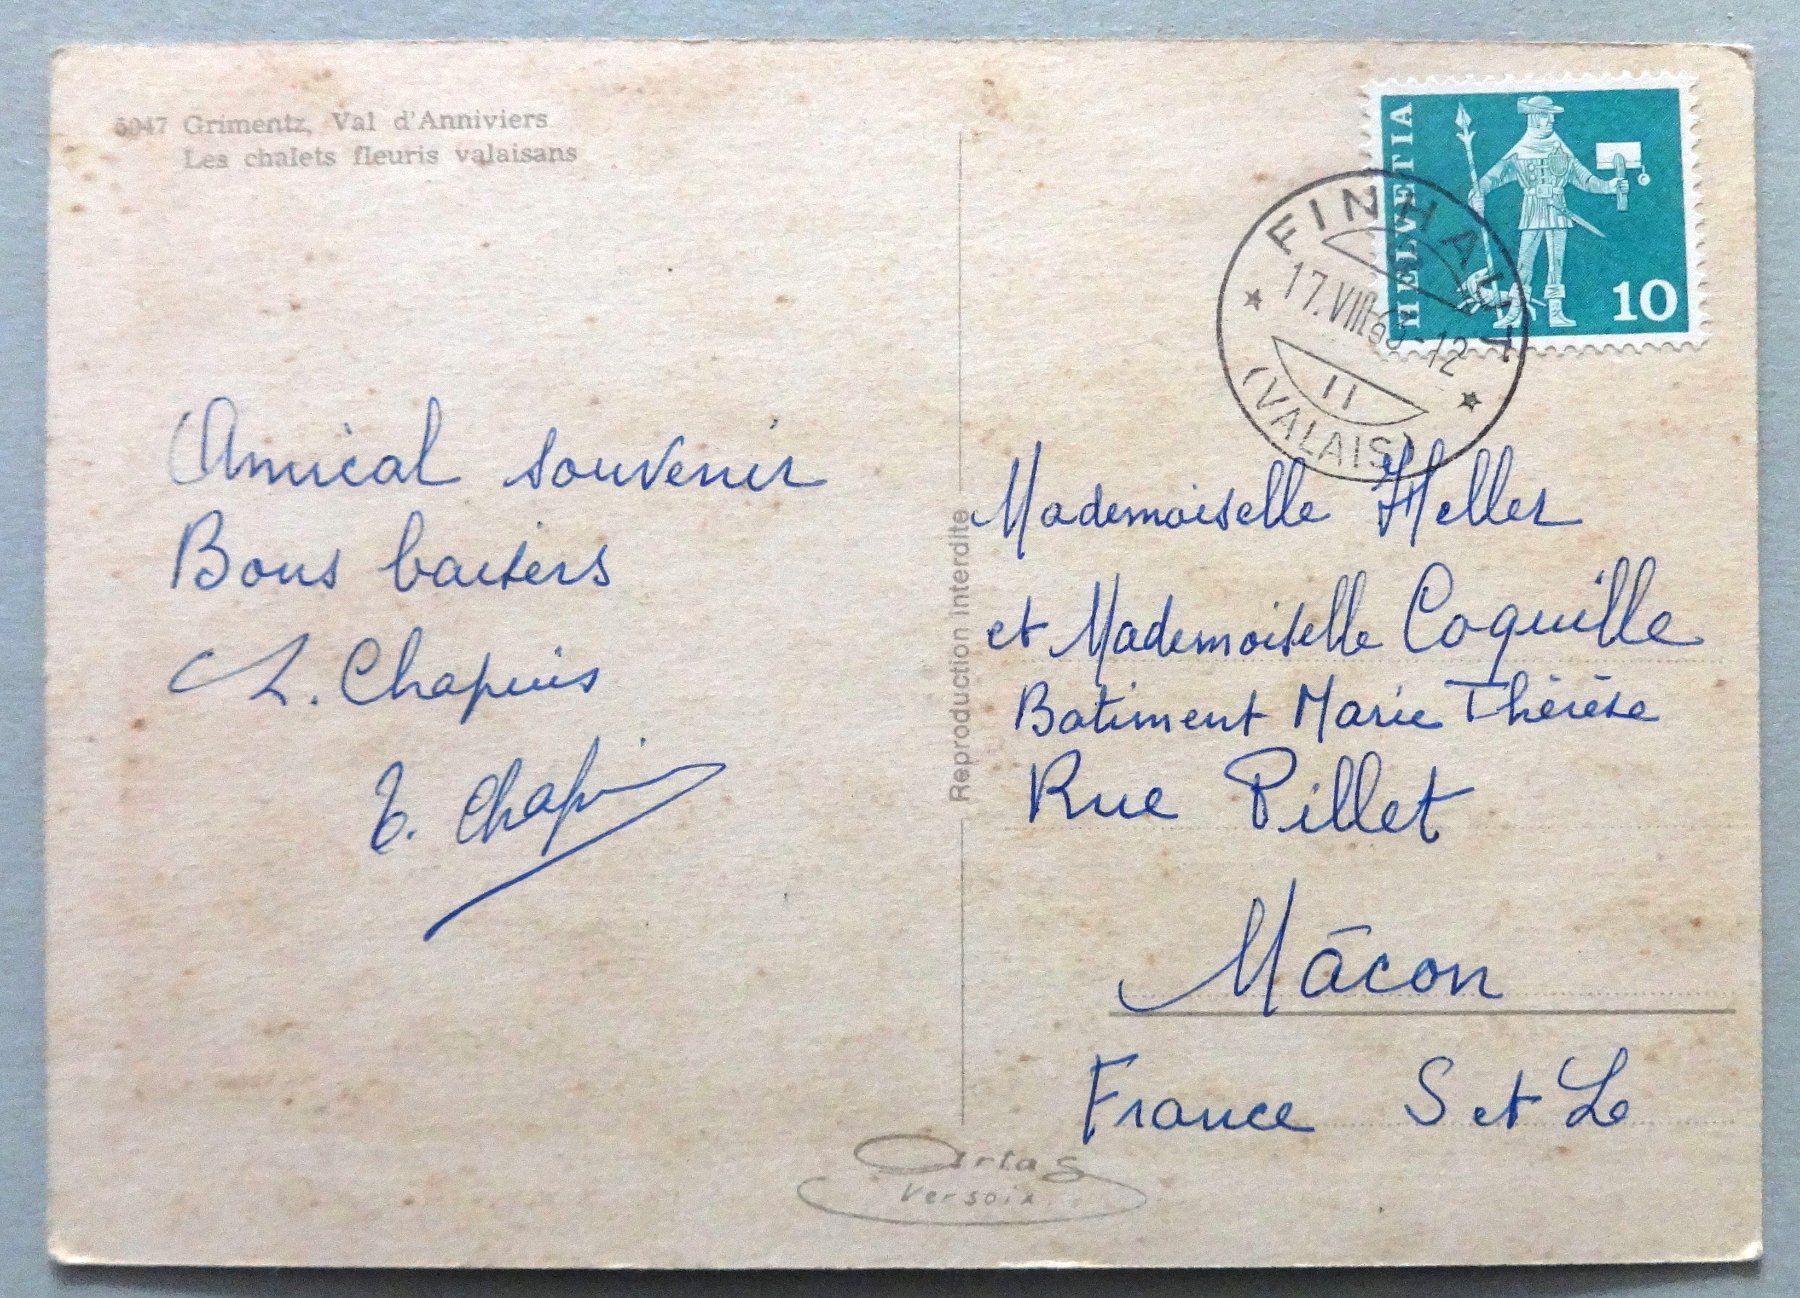 5047 Grimentz, Val d'Anniviers
Les chalets fleuris valaisans
Amical souvenir
Bons baisers
L. Chapuis
Chapuis
Reproduction interdite
HELVETIA
10
FINHAUT
17.VIII.6 -12
11
(VALAIS)
Mademoiselle Heller
et Mademoiselle Coquille
Batiment Marie Thérèse
Rue Pillet
Mâcon
France S et L
Artas
Versoix